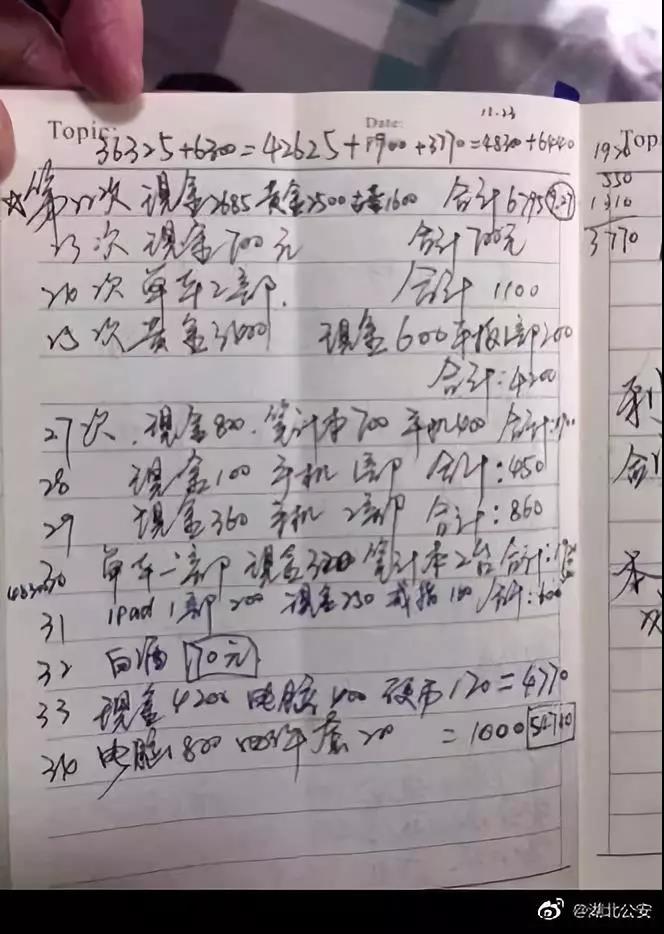 11.23
Topic: Date:
36325+6300=42625+1900+3770=48300+6440
☆第22次 现金2685 黄金2500 1600 合计6795 9.27
23次 现金700元 合计700元
24次 单车2部. 合计 1100
25次 黄金3400 现金600 平板1部200
合计:4200
27次.现金800.笔计本700 手机400 合计:1900
28 现金100 手机1部 合计:450
29 现金360 手机2部 合计:860
30 单车一部 现金320 笔计本2台 合计:
48300
31 ipad 1部200 现金250 戒指100 合计:
32 白酒 70元
33 现金4200 电脑400 硬币170=4770
34 电脑800 四件套200 =1000 54740
Top
1920
550
1310
3770
@湖北公安